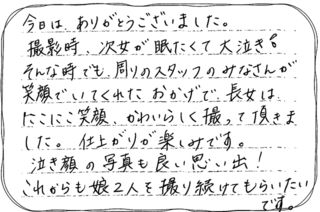 今日は、ありがとうございました。
撮影時、次女が眠たくて大泣き!
そんな時でも、周りのスタッフのみなさんが
笑顔でいてくれたおかげで、長女は
にこにこ笑顔、かわいらしく撮って頂きま
した。仕上がりが楽しみです。
泣き顔の写真も良い思い出!
これからも娘2人を撮り続けてもらいたい
です。